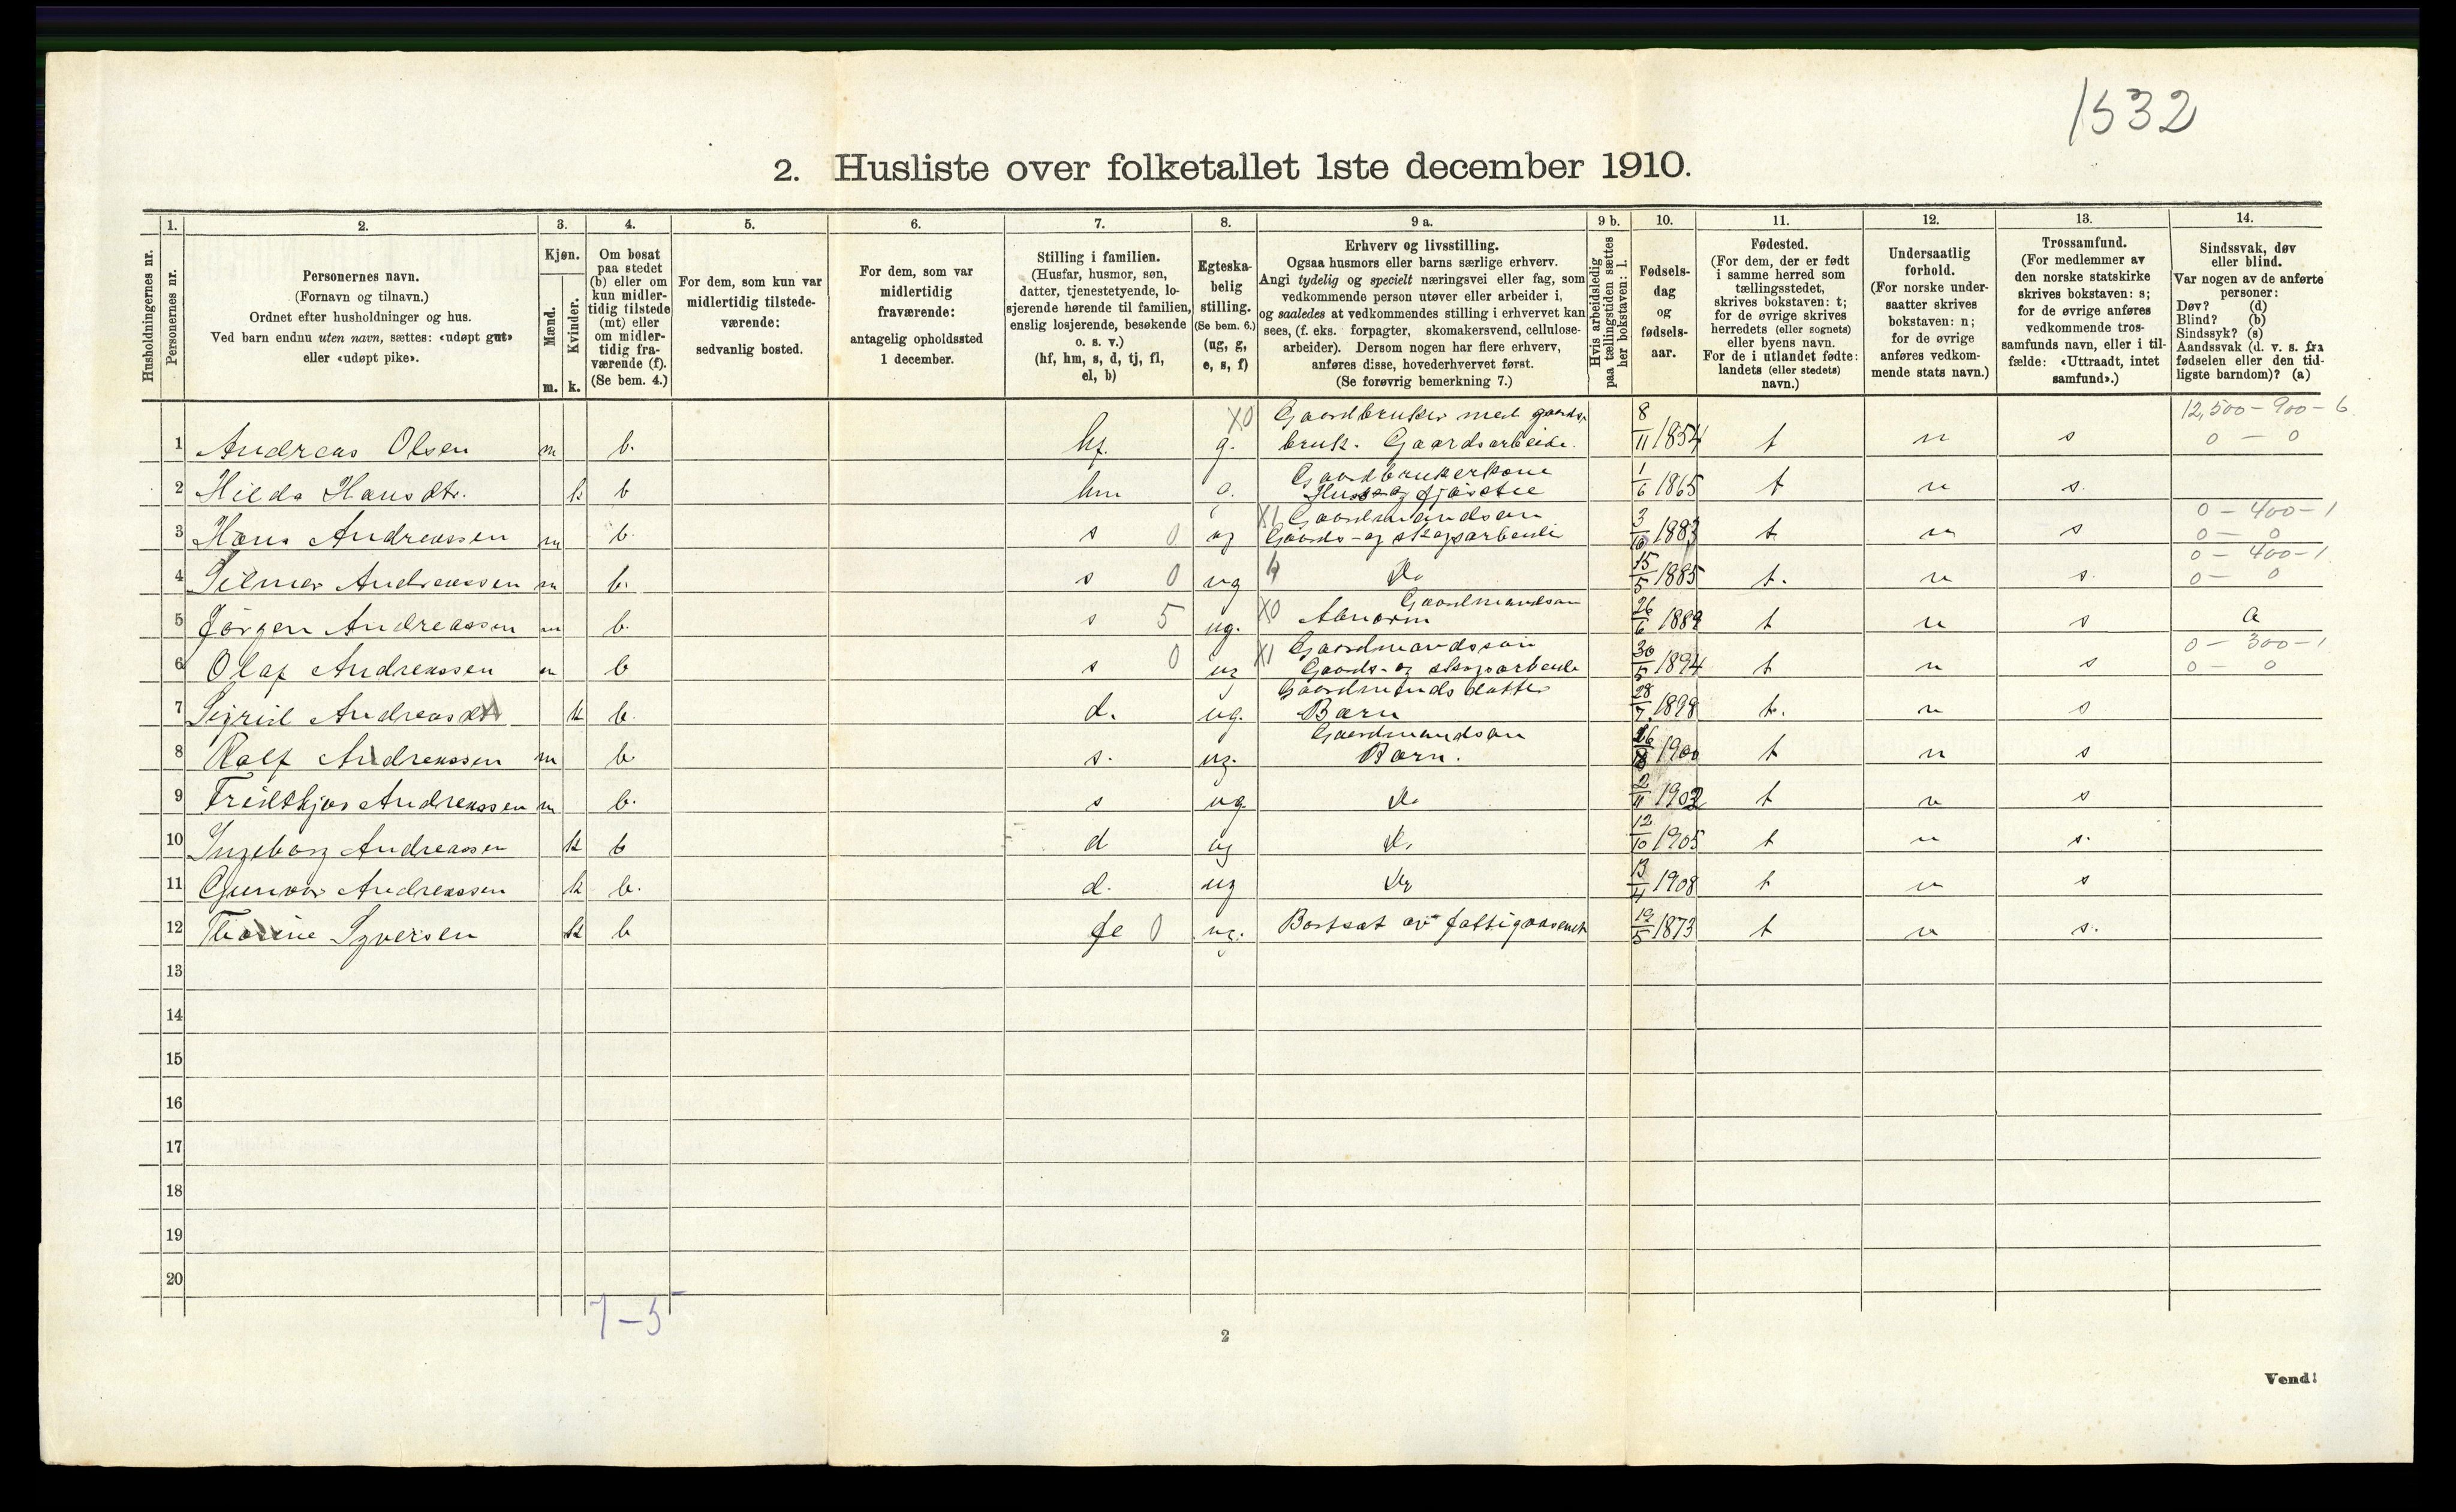 1532
2. Husliste over folketallet 1ste december 1910.
Husholdningernes nr.
1.
Personernes nr.
2.
Personernes navn.
(Fornavn og tilnavn.)
Ordnet efter husholdninger og hus.
Ved barn endnu uten navn, sættes: «udøpt gut»
eller «udøpt pike».
3.
Kjøn.
Mænd.
m.
Kvinder.
k.
4.
Om bosat
paa stedet
(b) eller om
kun midler-
tidig tilstede
(mt) eller
om midler-
tidig fra-
værende (f).
(Se bem. 4.)
5.
For dem, som kun var
midlertidig tilstede-
værende:
sedvanlig bosted.
6.
For dem, som var
midlertidig
fraværende:
antagelig opholdssted
1 december.
7.
Stilling i familien.
(Husfar, husmor, søn,
datter, tjenestetyende, lo-
sjerende hørende til familien,
enslig losjerende, besøkende
o. s. v.)
(hf, hm, s, d, tj, fl,
el, b)
8.
Egteska-
belig
stilling.
(Se bem. 6.)
(ug, g,
e, s, f)
9 a.
Erhverv og livsstilling.
Ogsaa husmors eller barns særlige erhverv.
Angi tydelig og specielt næringsvei eller fag, som
vedkommende person utøver eller arbeider i,
og saaledes at vedkommendes stilling i erhvervet kan
sees, (f. eks. forpagter, skomakersvend, cellulose-
arbeider). Dersom nogen har flere erhverv,
anføres disse, hovederhvervet først.
(Se forøvrig bemerkning 7.)
9 b.
Hvis arbeidsledig
paa tællingstiden sættes
her bokstaven: l.
10.
Fødsels-
dag
og
fødsels-
aar.
11.
Fødested.
(For dem, der er født
i samme herred som
tællingsstedet,
skrives bokstaven: t;
for de øvrige skrives
herredets (eller sognets)
eller byens navn.
For de i utlandet fødte:
landets (eller stedets)
navn.)
12.
Undersaatlig
forhold.
(For norske under-
saatter skrives
bokstaven: n;
for de øvrige
anføres vedkom-
mende stats navn.)
13.
Trossamfund.
(For medlemmer av
den norske statskirke
skrives bokstaven: s;
for de øvrige anføres
vedkommende tros-
samfunds navn, eller i til-
fælde: «Uttraadt, intet
samfund».)
14.
Sindssvak, døv
eller blind.
Var nogen av de anførte
personer:
Døv? (d)
Blind? (b)
Sindssyk? (s)
Aandssvak (d. v. s. fra
fødselen eller den tid-
ligste barndom)? (a)
X0 Gaardbruker med gaards- 12,500 - 900 - 6
1 Andreas Olsen m b. hf. g. bruk. Gaardsarbeide. 8/11 1854 t n s 0 - 0
Gaardbrukerkone
2 Hilda Hansdtr. k b hm g. Hus og fjösstel 1/6 1865 t n s.
X1 Gaardmandsøn 0 - 400 - 1
3 Hans Andreassen m b. s 0 ug Gaards- og skogsarbeide 3/10 1883 t n s 0 - 0
0 - 400 - 1
4 Hilmar Andreassen m b. s 0 ug Do 15/5 1885 t. n s. 0 - 0
Gaardmandsøn
5 Jørgen Andreassen m b. s 5 ug. X0 Abnorm 26/6 1889 t n s a
X1 Gaardmandssøn 0 - 300 - 1
6 Olaf Andreassen m b s 0 ug Gaards- og skogsarbeide 30/5 1894 t n s 0 - 0
Gaardmandsdatter
7 Sigrid Andreasdtr k b. d. ug. Barn 28/7 1898 t. n s
Gaardmandsøn
8 Ralf Andreassen m b. s. ug. Barn. 1900 t n s
9 Fridthjov Andreassen m b. s ug Do 2/11 1902 t n s
10 Ingeborg Andreassen k b d ug Do 12/10 1905 t n s.
11 Gunvor Andreassen k b. d. ug Do 13/4 1908 t n s
12 Thorine Syversen k b fl 0 ug. Bortsat av fattigvæsenet 19/5 1873 t n s.
13
14
15
16
17
18
19
20
7-5
2
Vend!